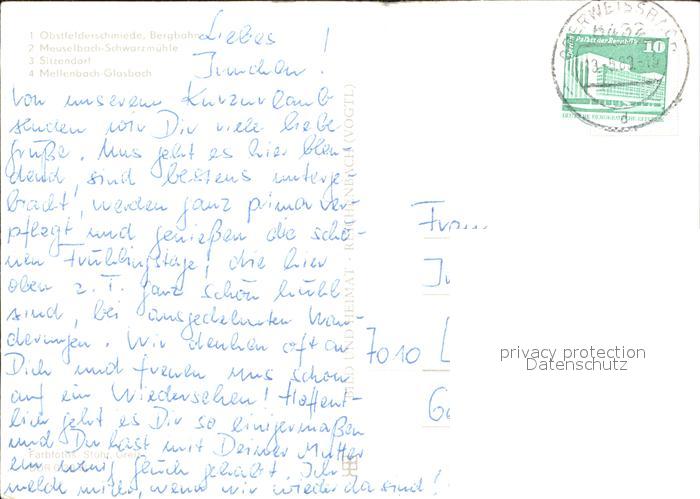 1 Obstfelderschmiede, Bergbahn
2 Meuselbach-Schwarzmühle
3 Sitzendorf
4 Mellenbach-Glasbach
Liebes
!
von unserem Kurzurlaub
senden wir Dir viele liebe
Grüße. Uns geht es hier blen
dend, sind bestens unterge
bracht, werden ganz prima ver-
pflegt und genießen die schö-
nen Frühlingstage, die hier
oben z. T. ganz schön kühl
sind, bei ausgedehnten Wan-
derungen. Wir denken oft an
Dich und freuen uns schon
auf ein Wiedersehen! Hoffent-
lich geht es Dir so einigermaßen
und Du hast mit Deiner Mutter
ein wenig Glück gehabt. Ich
melde mich, wenn wir wieder da sind!
Farbfotos: Stuhr, Greiz
BILD UND HEIMAT · REICHENBACH (VOGTL)
OBERWEISSBACH
Berlin, Palast der Republik
10
DEUTSCHE DEMOKRATISCHE REPUBLIK
Frau
7010
privacy protection
Datenschutz